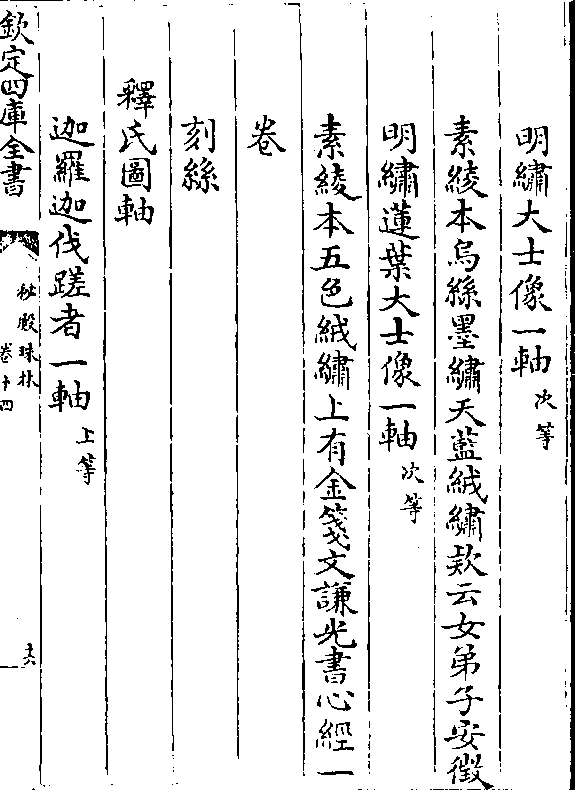 明繡大士像一軸次等
素綾本烏絲墨繡天藍絨繡款云女弟子安徵
明繡蓮葉大士像一軸次等
素綾本五色絨繡上有金箋文謙光書心經一
卷
刻絲
釋氏圖軸
迦羅迦伐蹉者一軸上等
欽定四庫全書
秘殿珠林
卷十四
十六